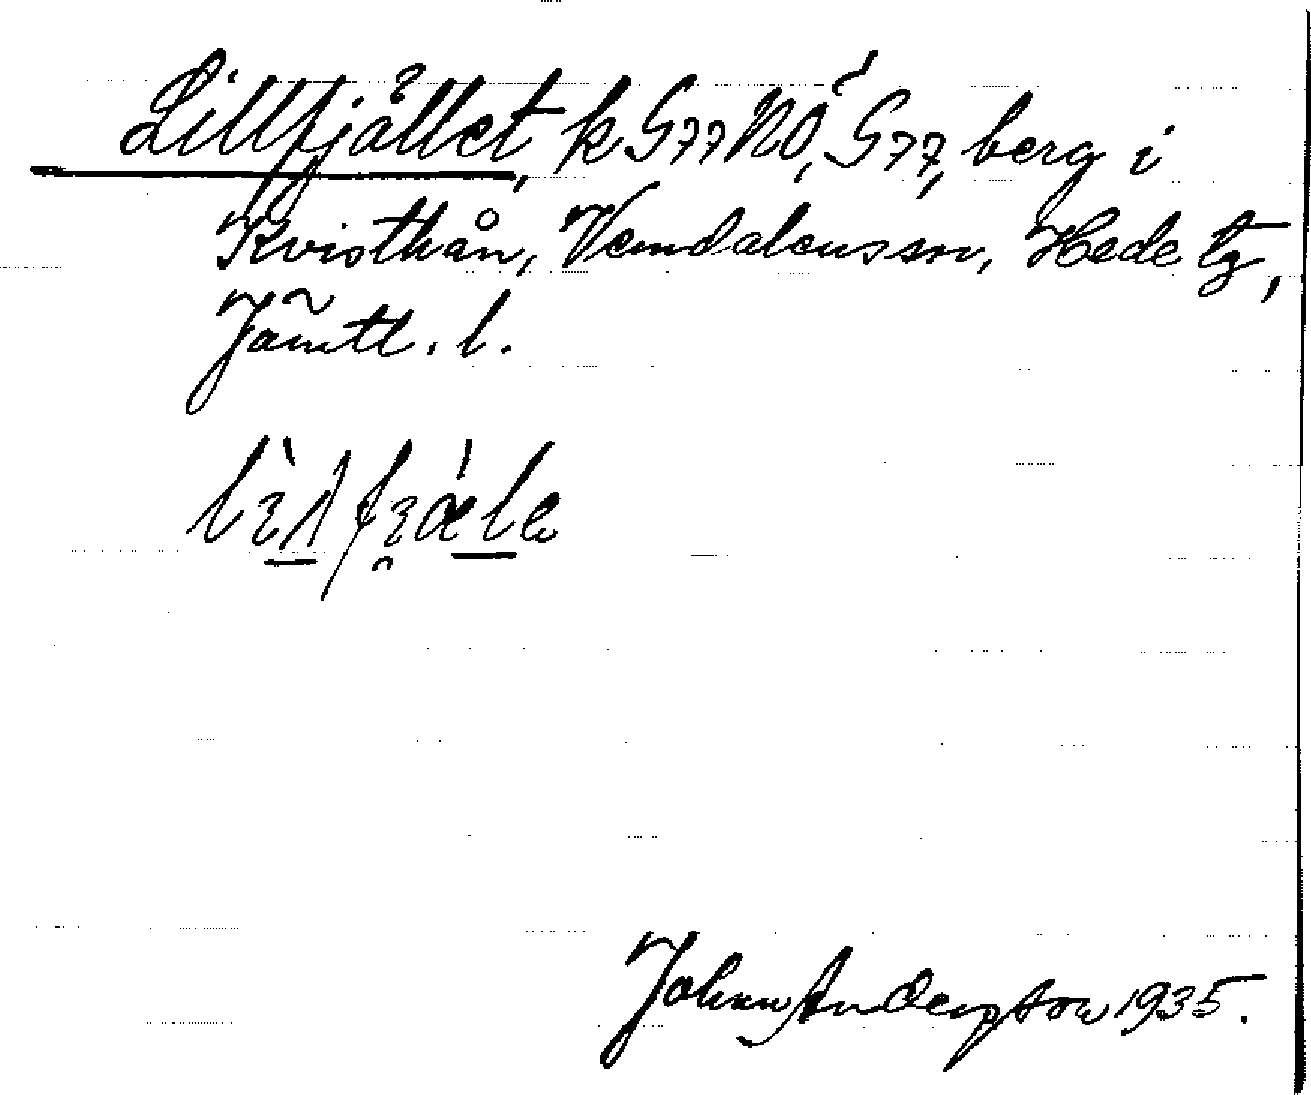 Lillfjället, k G77NÖ, G77, berg i
Kvisthån, Vemdalens sn, Hede tg,
Jämtl. l.
Johan Andersson 1935.